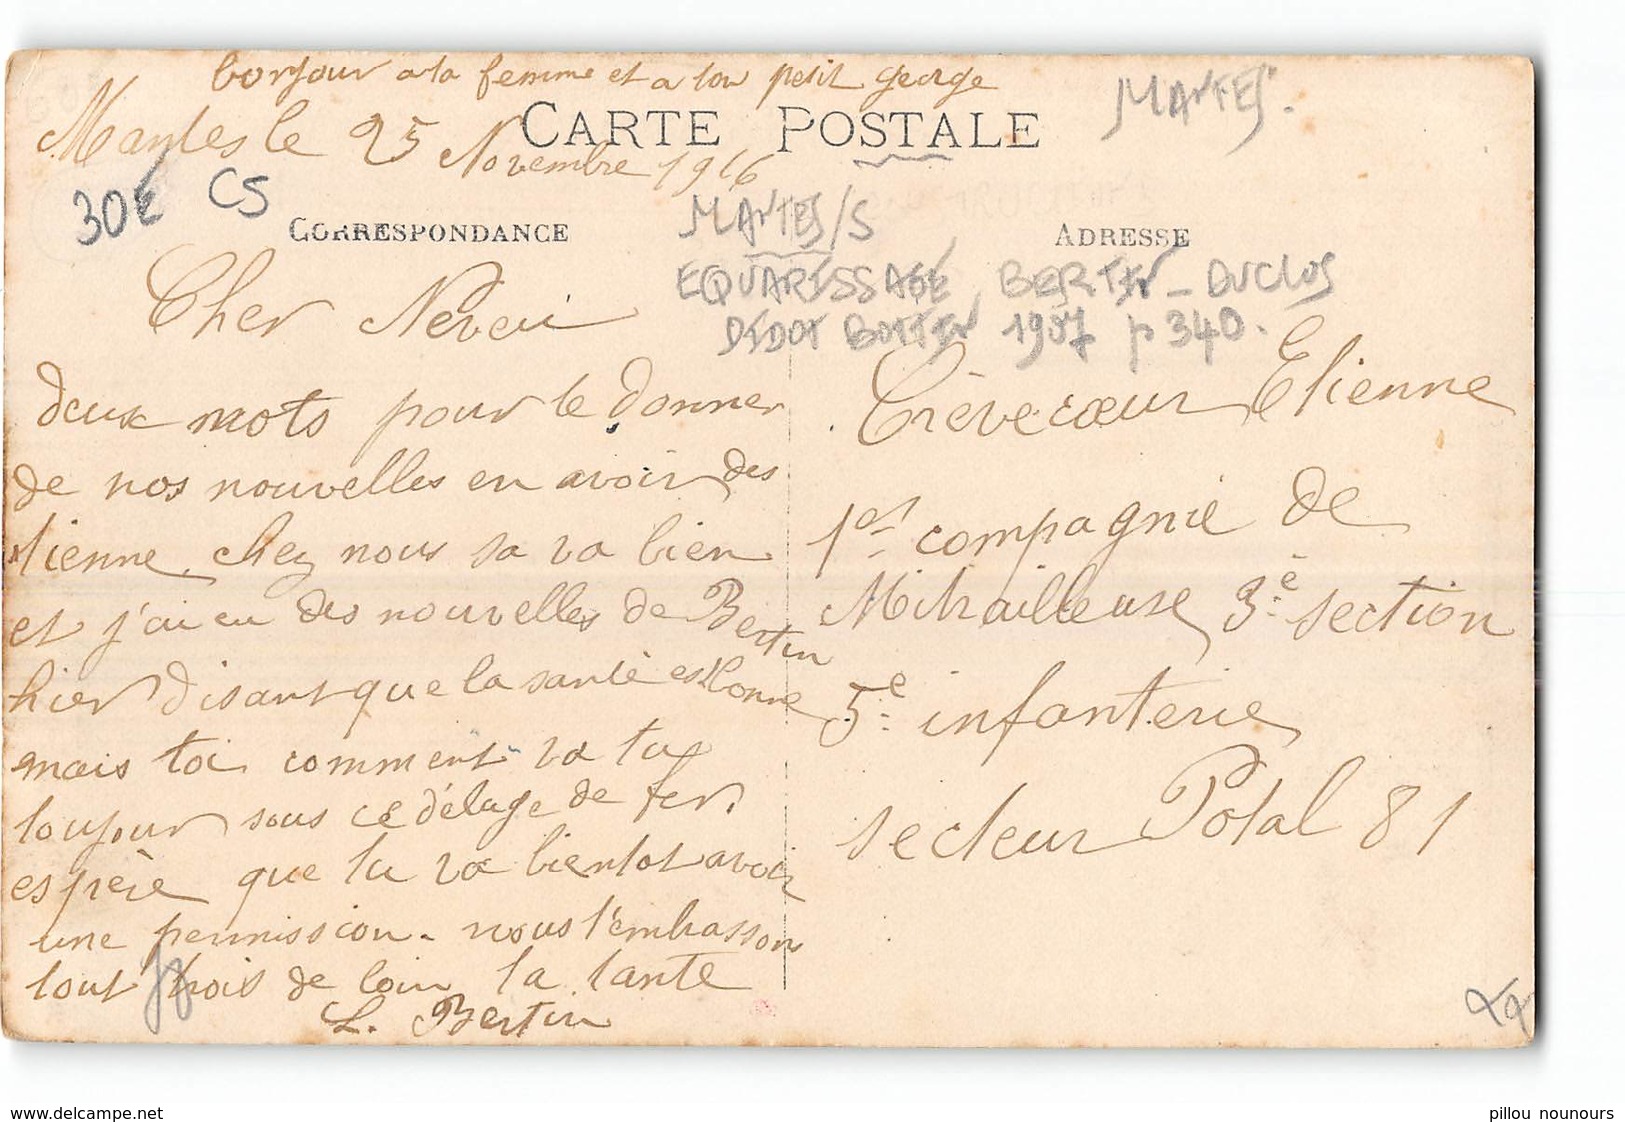 bonjour a ta femme et a ton petit george
Mantes le 25 Novembre 1916
CARTE POSTALE
MANTES.
30€ CS
CORRESPONDANCE
MANTES/S
ADRESSE
EQUARISSAGE BERTIN-DUCLOS
DIDOT BOTTIN 1907 p 340.
Cher Neveu
deux mots pour te donner
de nos nouvelles en avoir des
tienne chez nous sa va bien
et j'ai eu des nouvelles de Bertin
hier disant que la santé est bonne
mais toi comment va tu
toujour sous ce délage de fer.
espère que tu va bientot avoir
une permission. nous t'embrassons
tout trois de loin ta tante
L. Bertin
Crèvecœur Etienne
1er compagnie de
Mitrailleuse 3e section
5e infanterie
secteur Potal 81
www.delcampe.net
pillou nounours